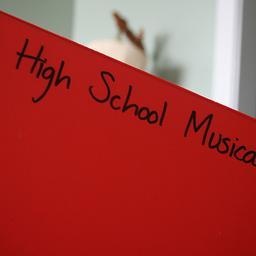 High School Musica